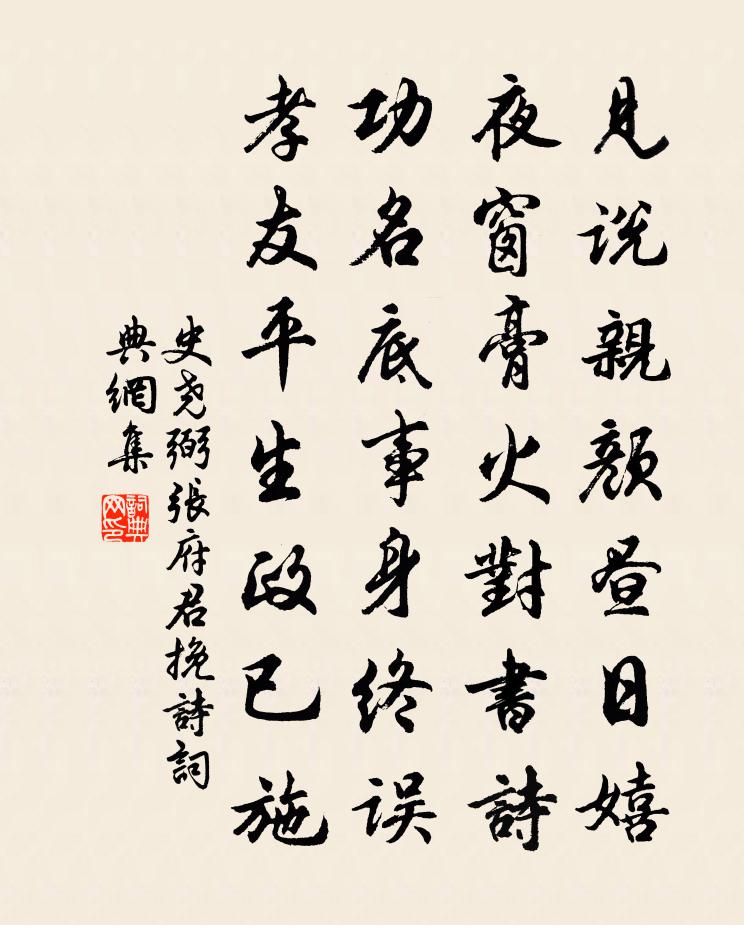 見说親颜昼日嬉
夜窗膏火對書詩
功名底事身终误
孝友平生政已施
史尧弼張府君挽詩詞
典網集
詞典
网印